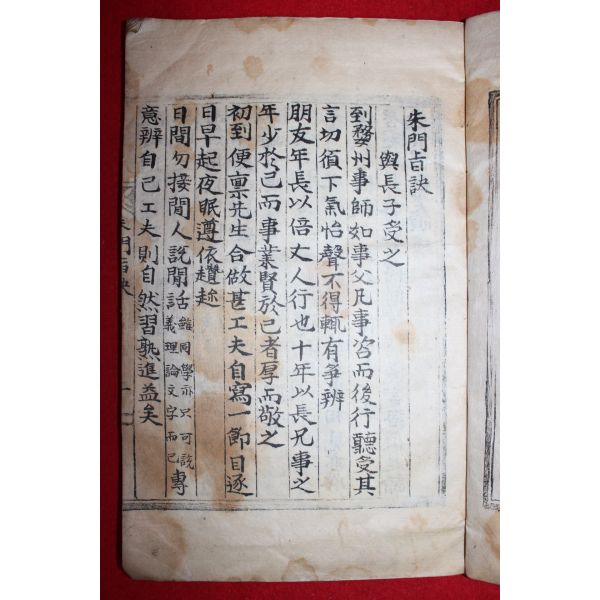 朱門旨訣
與長子受之
到婺州事師如事父凡事咨而後行聽受其
言切須下氣怡聲不得輒有爭辨
朋友年長以倍丈人行也十年以長兄事之
年少於己而事業賢於己者厚而敬之
初到便禀先生合做甚工夫自寫一節目逐
日早起夜眠遵依趲趂
日間勿接閒人說閒話雖同學亦只可說義理論文字而已專
意辨自己工夫則自然習熟進益矣
朱門旨訣 一